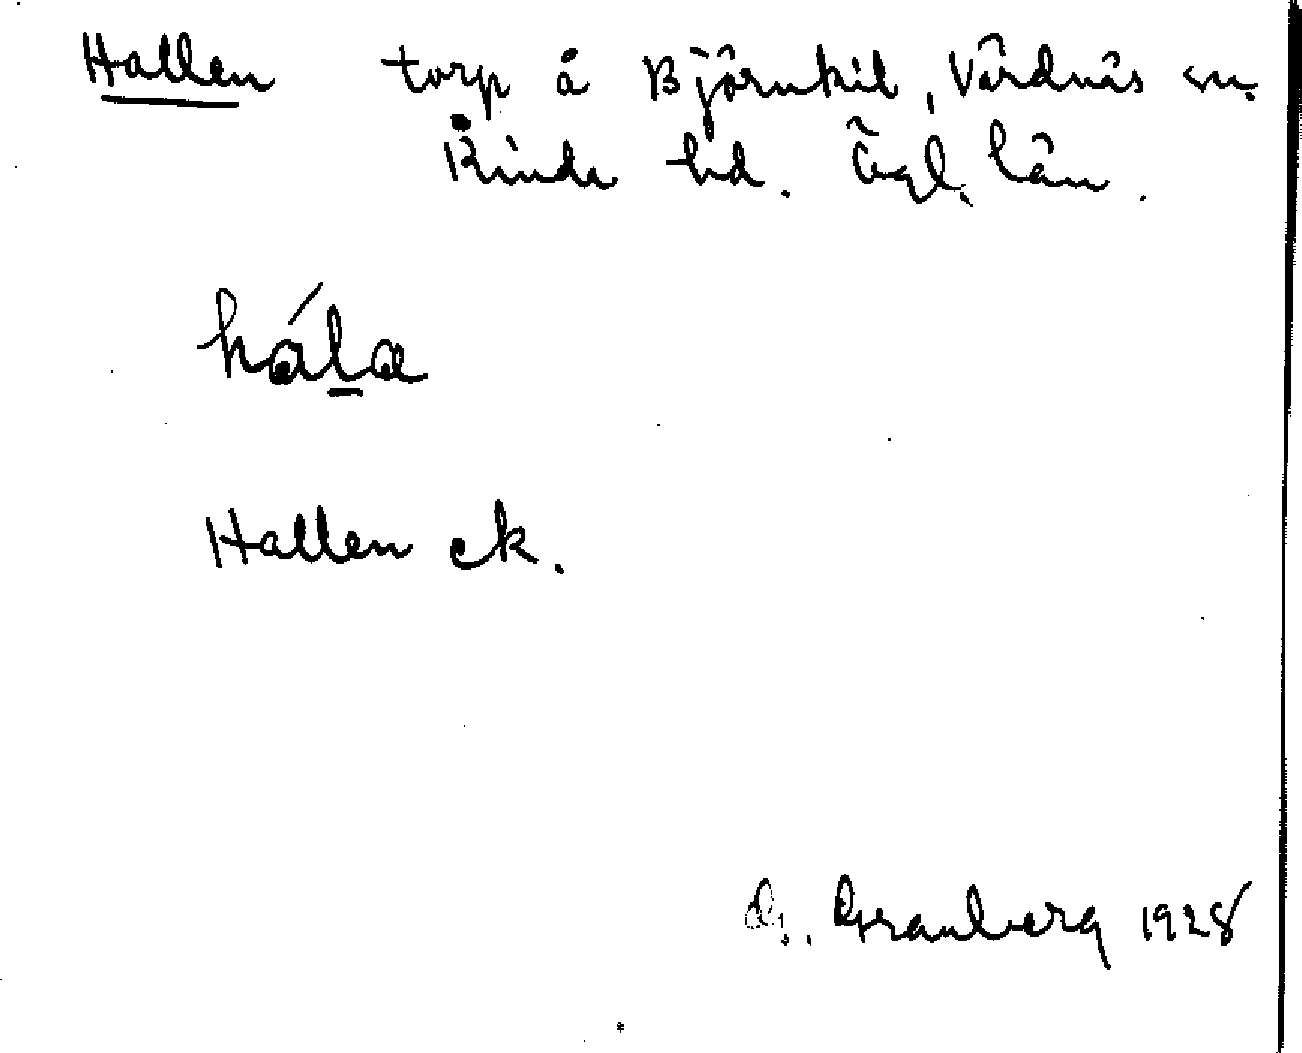 Hallen torp å Björnkil, Vårdnäs sn.
Kinda hd. Ögl. län.
hála
Hallen ek.
G. Granberg 1928